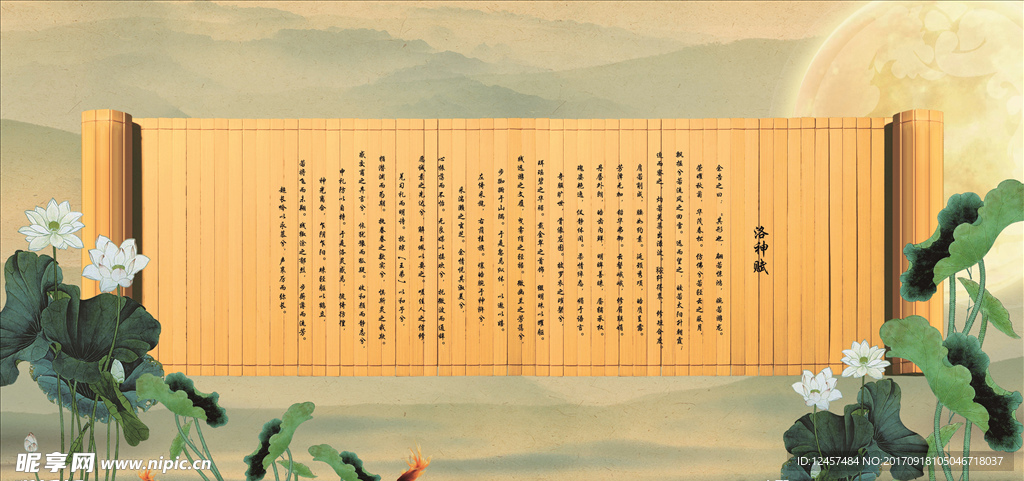 洛神赋
余告之曰：“其形也，翩若惊鸿，婉若游龙。
荣曜秋菊，华茂春松。仿佛兮若轻云之蔽月，
飘摇兮若流风之回雪。远而望之，皎若太阳升朝霞；
迫而察之，灼若芙蕖出渌波。秾纤得衷，修短合度。
肩若削成，腰如约素。延颈秀项，皓质呈露。
芳泽无加，铅华弗御。云髻峨峨，修眉联娟。
丹唇外朗，皓齿内鲜，明眸善睐，靥辅承权。
瑰姿艳逸，仪静体闲。柔情绰态，媚于语言。
奇服旷世，骨像应图。披罗衣之璀粲兮，
珥瑶碧之华琚。戴金翠之首饰，缀明珠以耀躯。
践远游之文履，曳雾绡之轻裾。微幽兰之芳蔼兮，
步踟蹰于山隅。于是忽焉纵体，以遨以嬉。
左倚采旄，右荫桂旗。攘皓腕于神浒兮，
采湍濑之玄芝。余情悦其淑美兮，
心振荡而不怡。无良媒以接欢兮，托微波而通辞。
愿诚素之先达兮，解玉佩以要之。嗟佳人之信修
羌习礼而明诗。抗琼[王弟]以和予兮，
指潜渊而为期。执眷眷之款实兮，惧斯灵之我欺。
感交甫之弃言兮，怅犹豫而狐疑。收和颜而静志兮，
申礼防以自持。于是洛灵感焉，徙倚彷徨，
神光离合，乍阴乍阳。竦轻躯以鹤立，
若将飞而未翔。践椒涂之郁烈，步蘅薄而流芳。
超长吟以永慕兮，声哀厉而弥长。
昵享网 www.nipic.cn
ID:12457484 NO:20170918105046718037